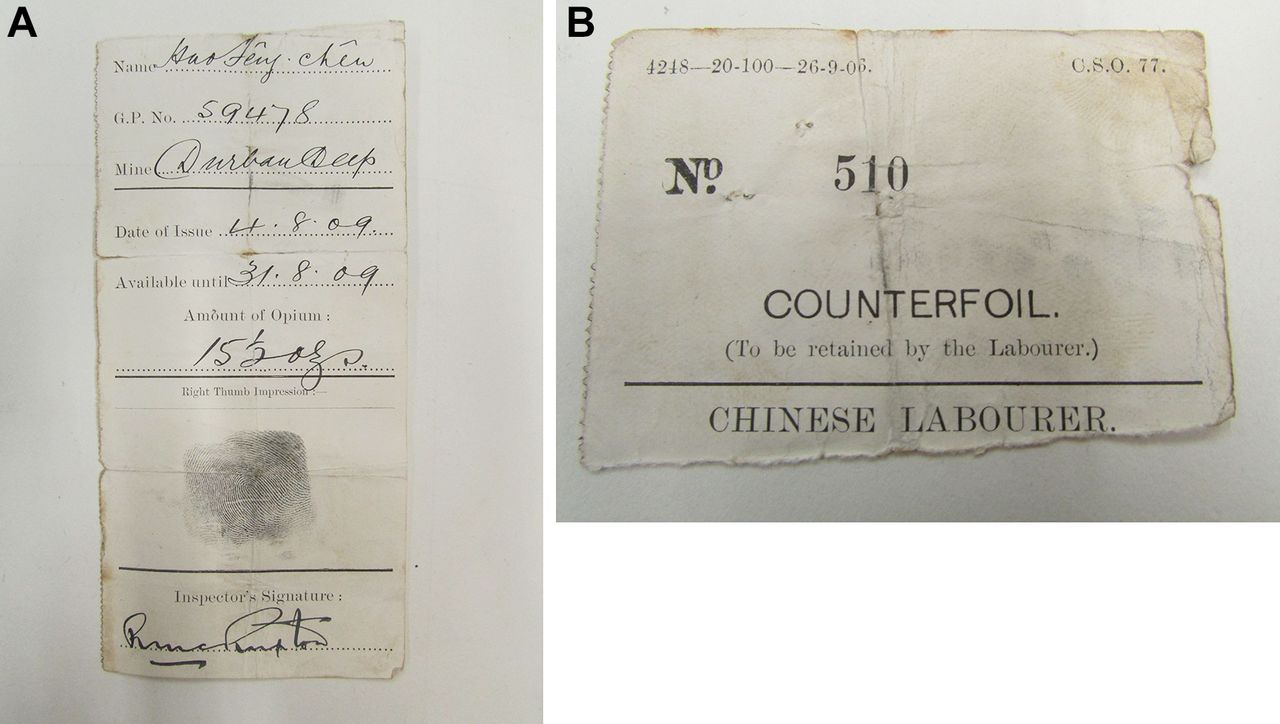 A
Name Hao Fêng-chên
G.P. No. 59478
Mine Durban Deep
Date of Issue 4.8.09.
Available until 31.8.09
Amount of Opium :
15½ ozs.
Right Thumb Impression :—
Inspector's Signature :
B
4248—20-100—26-9-06.
C.S.O. 77.
No. 510
COUNTERFOIL.
(To be retained by the Labourer.)
CHINESE LABOURER.